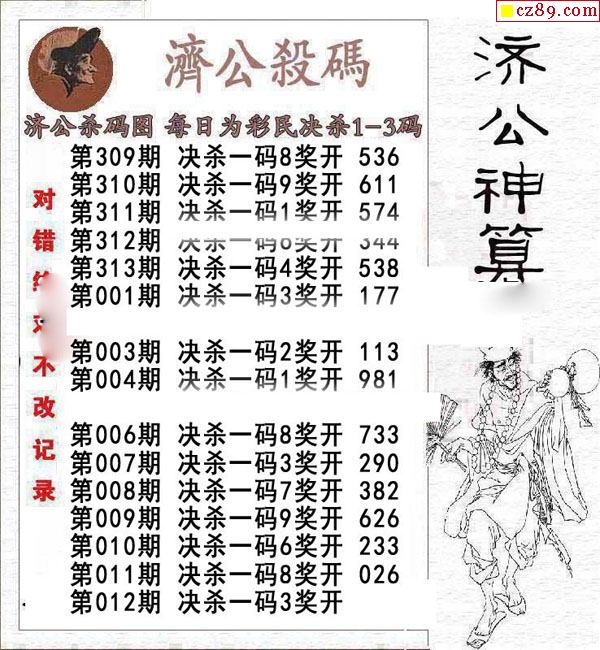 cz89.com
濟公殺碼
济公杀码图 每日为彩民决杀1-3码
第309期 决杀一码8奖开 536
第310期 决杀一码9奖开 611
第311期 决杀一码1奖开 574
第312期 决杀一码6奖开 344
第313期 决杀一码4奖开 538
第001期 决杀一码3奖开 177
第003期 决杀一码2奖开 113
第004期 决杀一码1奖开 981
第006期 决杀一码8奖开 733
第007期 决杀一码3奖开 290
第008期 决杀一码7奖开 382
第009期 决杀一码9奖开 626
第010期 决杀一码6奖开 233
第011期 决杀一码8奖开 026
第012期 决杀一码3奖开
对错 不改记录
济公神算